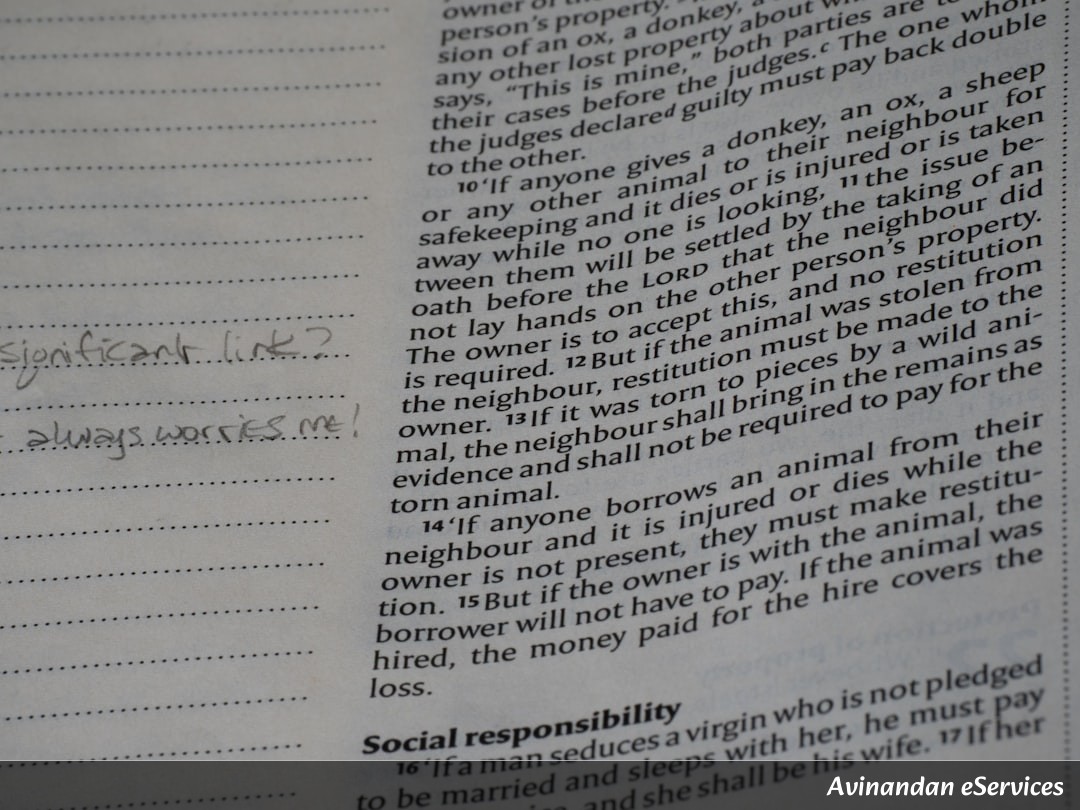 significant link?
always worries me!
owner of
person's property.
sion of an ox, a donkey, a
any other lost property about
says, "This is mine," both parties are
their cases before the judges.c The one whom
the judges declared guilty must pay back double
to the other.
10 'If anyone gives a donkey, an ox, a sheep
or any other animal to their neighbour for
safekeeping and it dies or is injured or is taken
away while no one is looking, 11 the issue be-
tween them will be settled by the taking of an
oath before the LORD that the neighbour did
not lay hands on the other person's property.
The owner is to accept this, and no restitution
is required. 12 But if the animal was stolen from
the neighbour, restitution must be made to the
owner. 13 If it was torn to pieces by a wild ani-
mal, the neighbour shall bring in the remains as
evidence and shall not be required to pay for the
torn animal.
14 'If anyone borrows an animal from their
neighbour and it is injured or dies while the
owner is not present, they must make restitu-
tion. 15 But if the owner is with the animal, the
borrower will not have to pay. If the animal was
hired, the money paid for the hire covers the
loss.
Social responsibility
16 'If a man seduces a virgin who is not pledged
to be married and sleeps with her, he must pay
and she shall be his wife. 17 If her
Avinandan eServices